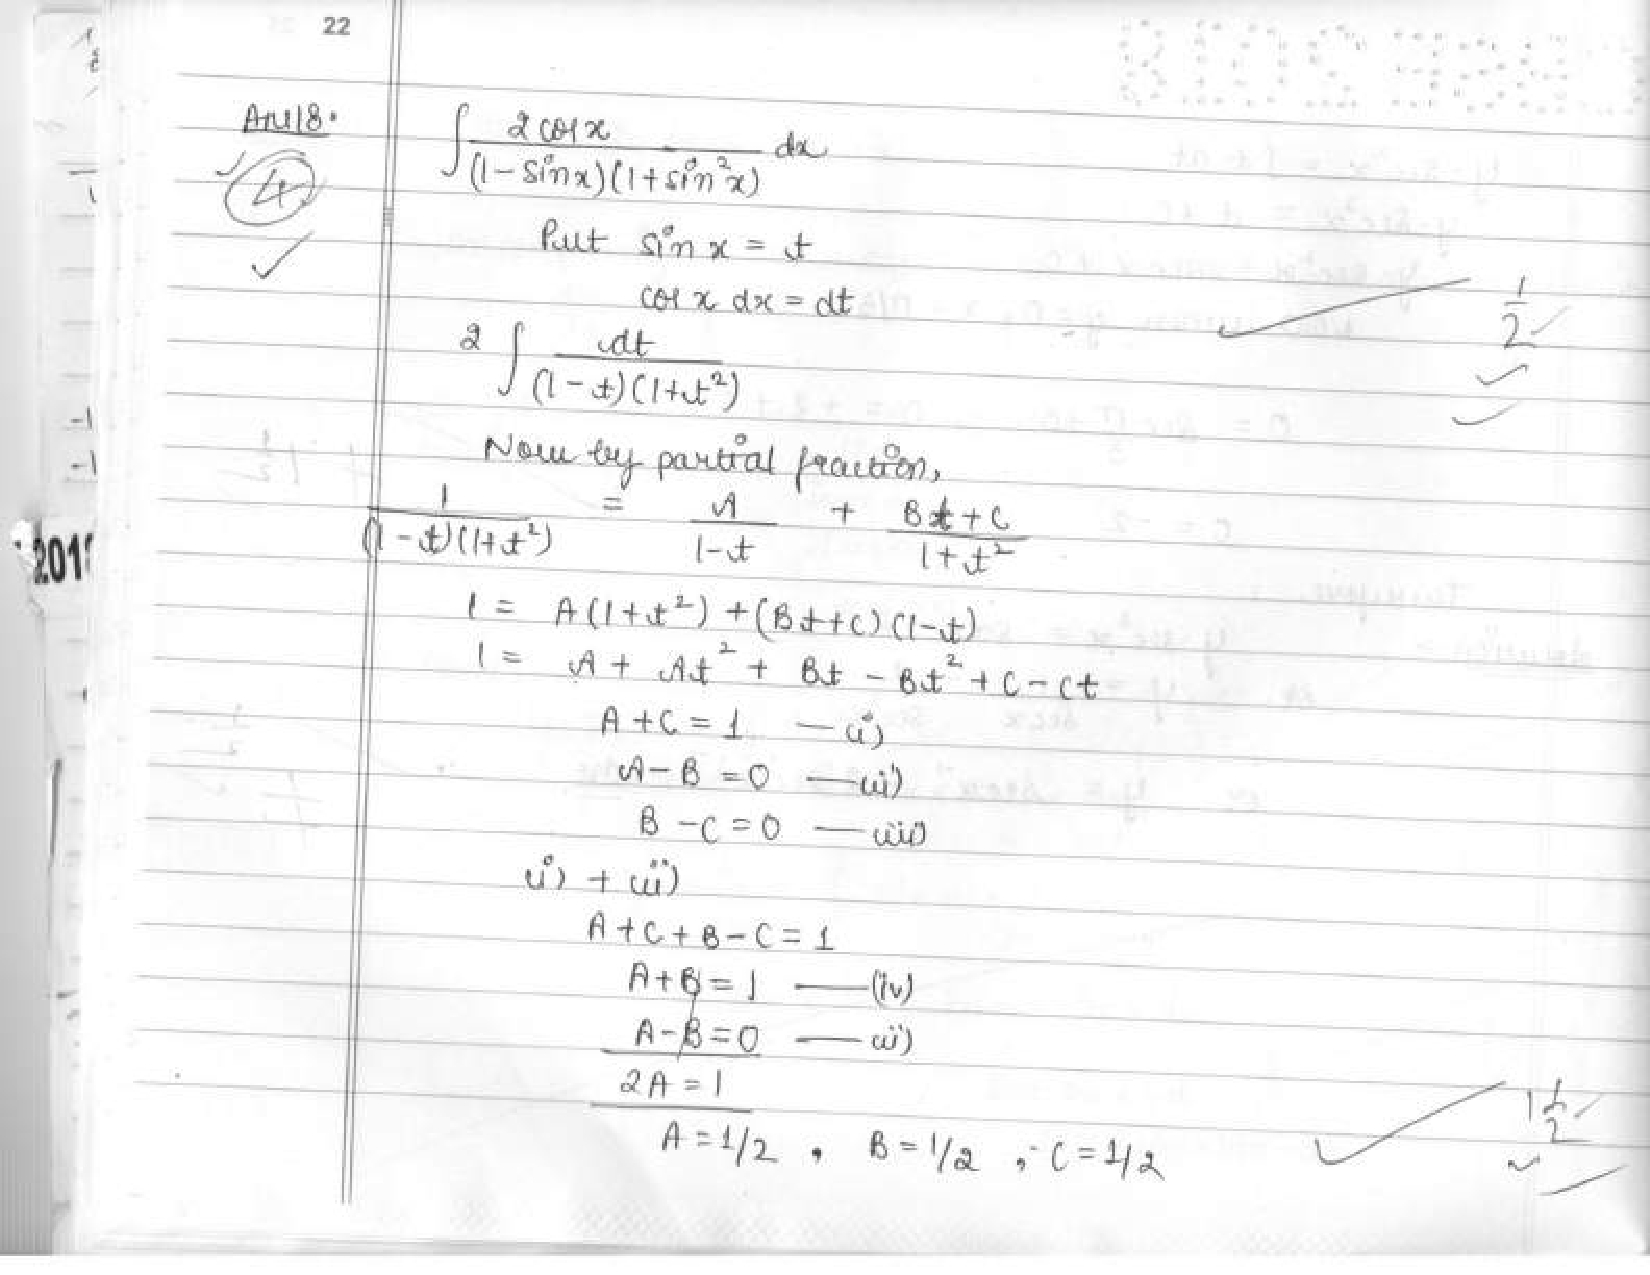 22
Ans18.
4
∫ 2 cos x / (1 - sin x)(1 + sin²x) dx
Put sin x = t
cos x dx = dt
1/2
2 ∫ dt / (1 - t)(1 + t²)
Now by partial fraction,
1 / (1 - t)(1 + t²) = A / 1 - t + Bt + C / 1 + t²
1 = A(1 + t²) + (Bt + C)(1 - t)
1 = A + At² + Bt - Bt² + C - Ct
A + C = 1 — i)
A - B = 0 — ii)
B - C = 0 — iii)
i) + iii)
A + C + B - C = 1
A + B = 1 — (iv)
A - B = 0 — ii)
2A = 1
A = 1/2 , B = 1/2 , C = 1/2
1 1/2
201